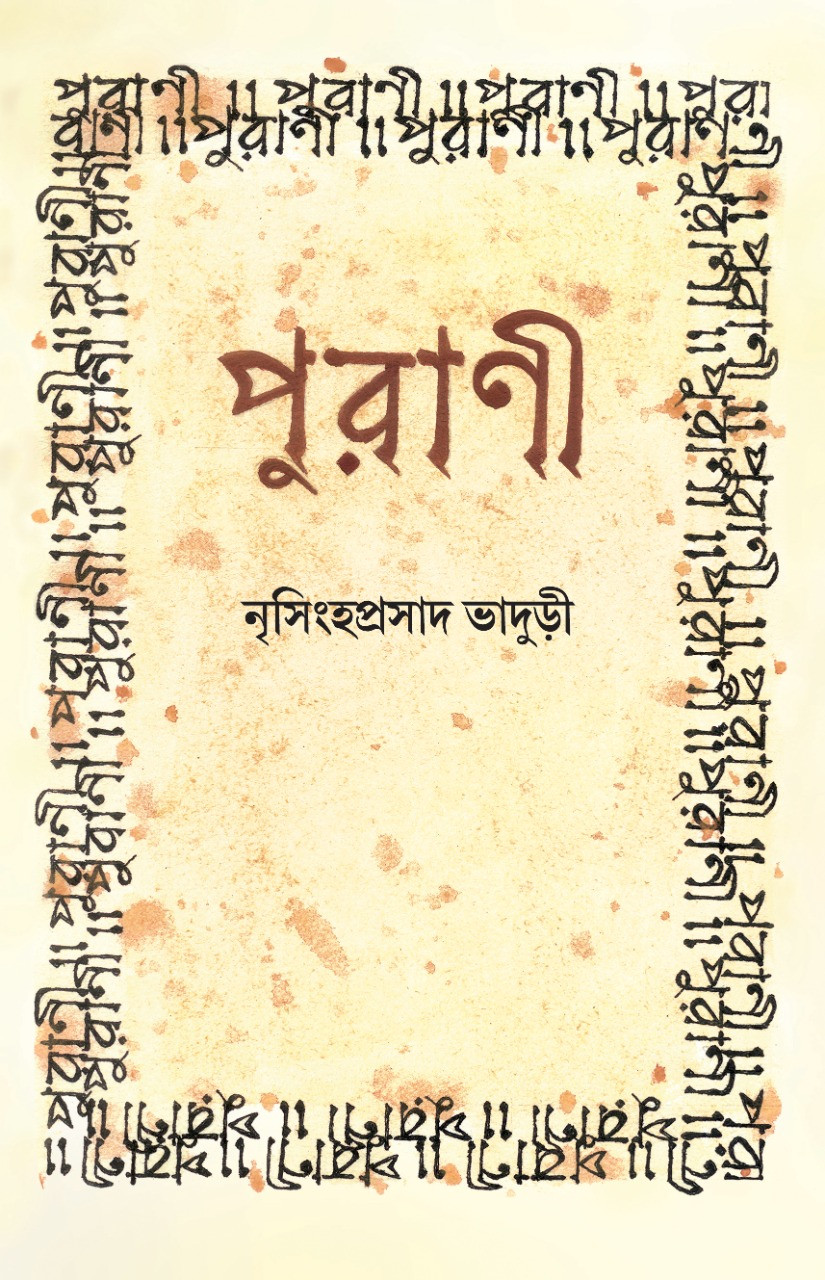 পুরাণী ॥ পুরাণী ॥ পুরাণী ॥ পুরা
রাণী ॥ পুরাণী ॥ পুরাণী ॥ পুরাণী
পুরাণী
নৃসিংহপ্রসাদ ভাদুড়ী
পুরাণী ॥ পুরাণী ॥ পুরাণী ॥ পুরাণী ॥ পুরাণী ॥
পুরাণী ॥ পুরাণী ॥ পুরাণী ॥ পুরাণী ॥ পুরাণী
পুরাণী ॥ পুরাণী ॥ পুরাণী ॥ পুরাণী ॥ পুরাণী ॥
ণী ॥ পুরাণী ॥ পুরাণী ॥ পুরাণী ॥ পুরাণী ॥ পুরা
পুরাণী ॥ পুরাণী ॥ পুরাণী ॥
ণী ॥ পুরাণী ॥ পুরাণী ॥ পুরাণী